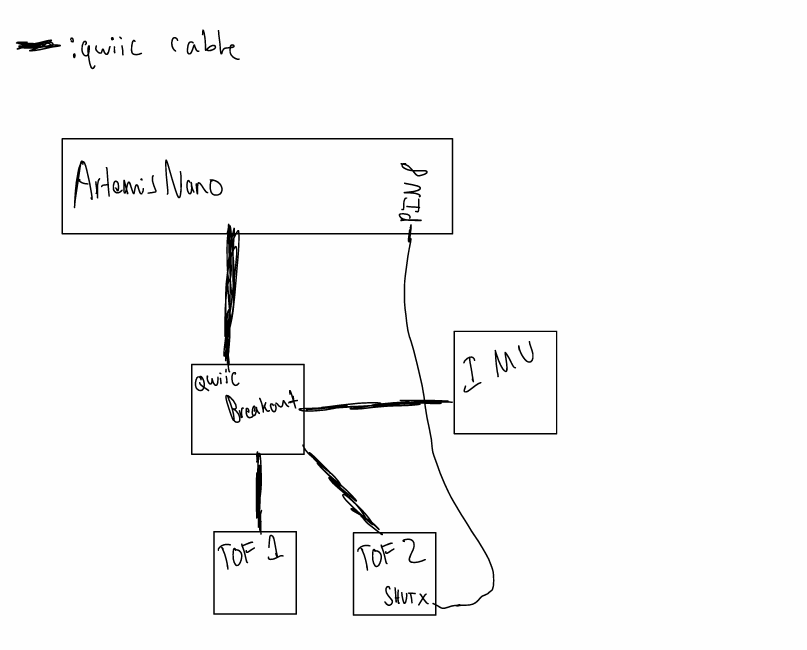 :qwiic cable
Artemis Nano
PIN 8
Qwiic
Breakout
IMU
TOF 1
TOF 2
SHUTX